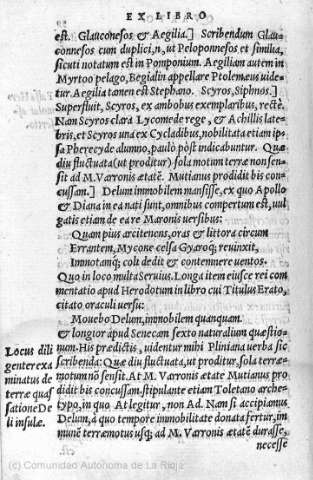 EX LIBRO
est. Glauconesos & Aegilia.] Scribendum Glau-
connesos cum duplici, n, ut Peloponnesos et similia,
sicuti notatum est in Pomponium. Aegiliam autem in
Myrtoo pelago, Begialin appellare Ptolemæus uide-
tur Aegilia tamen est Stephano. Scyros, Siphnos.]
Superfluit, Scyros, ex ambobus exemplaribus, rectè.
Nam Scyros clara Lycomede rege, & Achillis late-
bris, et Scyros una ex Cycladibus, nobilitata etiam ip-
sa Pherecyde alumno, paulò pòst indicabuntur. Quæ
diu fluctuata (ut proditur) sola motum terræ non sen-
sit ad M. Varronis ætatē. Mutianus prodidit bis con-
cussam.] Delum immobilem mansisse, ex quo Apollo
& Diana in ea nati sunt, omnibus compertum est, uul-
gatis etiam de ea re Maronis uersibus:
Quam pius arcitenens, oras & littora circum
Errantem, Mycone celsa Gyaroq; reuinxit,
Immotamq; coli dedit & contemnere uentos.
Quo in loco multa Seruius. Longa item eiusce rei com
mentatio apud Herodotum in libro cui Titulus Erato,
citato oraculi uersu:
Mouebo Delum, immobilem quanquam.
& longior apud Senecam sexto naturalium quæstio-
num. His prædictis, uidentur mihi Pliniana uerba sic
scribenda: Quæ diu fluctuata, ut proditur, sola terræ
motum nō sensit. At M. Varronis ætate Mutianus pro
didit bis concussam stipulante etiam Toletano arche-
typo, in quo At legitur, non Ad. Nam si accipiamus
Delum, à quo tempore immobilitate donata fertur, im
munē terræmotus usq; ad M. Varronis ætatē durasse,
necesse
Locus dili
genter exa
minatus de
terræ quas
satione De
li insulæ.
(c) Comunidad Autónoma de La Rioja